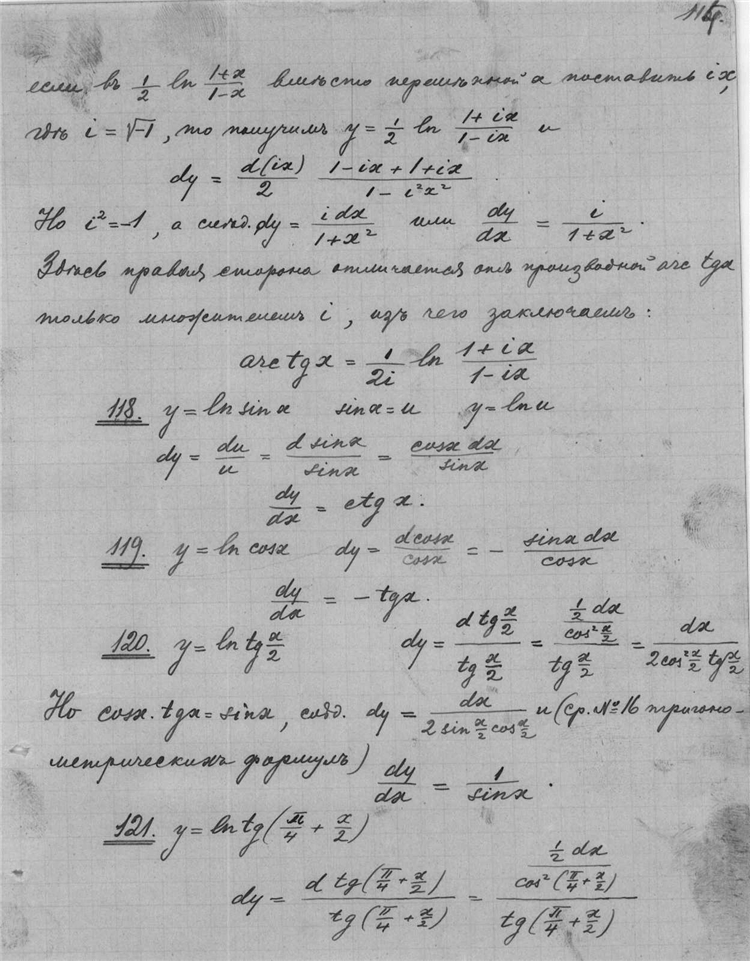 115.
если въ 1/2 ln (1+x)/(1-x) вмѣсто перемѣнной x поставить ix,
гдѣ i = √-1, то получимъ y = 1/2 ln (1+ix)/(1-ix) и
dy = d(ix)/2 (1-ix+1+ix)/(1-i²x²).
Но i²=-1, а слѣд. dy = i dx/(1+x²) или dy/dx = i/(1+x²).
Здѣсь правая сторона отличается отъ производной arc tgx
только множителемъ i, изъ чего заключаемъ:
arc tgx = 1/(2i) ln (1+ix)/(1-ix)
118. y = ln sinx sinx = u y = ln u
dy = du/u = d sinx/sinx = cosx dx/sinx
dy/dx = ctg x.
119. y = ln cosx dy = d cosx/cosx = - sinx dx/cosx
dy/dx = -tgx.
120. y = ln tg x/2 dy = (d tg x/2)/(tg x/2) = (1/2 dx/cos² x/2)/(tg x/2) = dx/(2cos² x/2 tg x/2)
Но cosx. tgx = sinx, слѣд. dy = dx/(2 sin x/2 cos x/2) и (ср. №16 тригоно-
метрическихъ формулъ) dy/dx = 1/sinx.
121. y = ln tg(π/4 + x/2)
dy = d tg(π/4 + x/2)/tg(π/4 + x/2) = (1/2 dx/cos²(π/4 + x/2))/tg(π/4 + x/2)